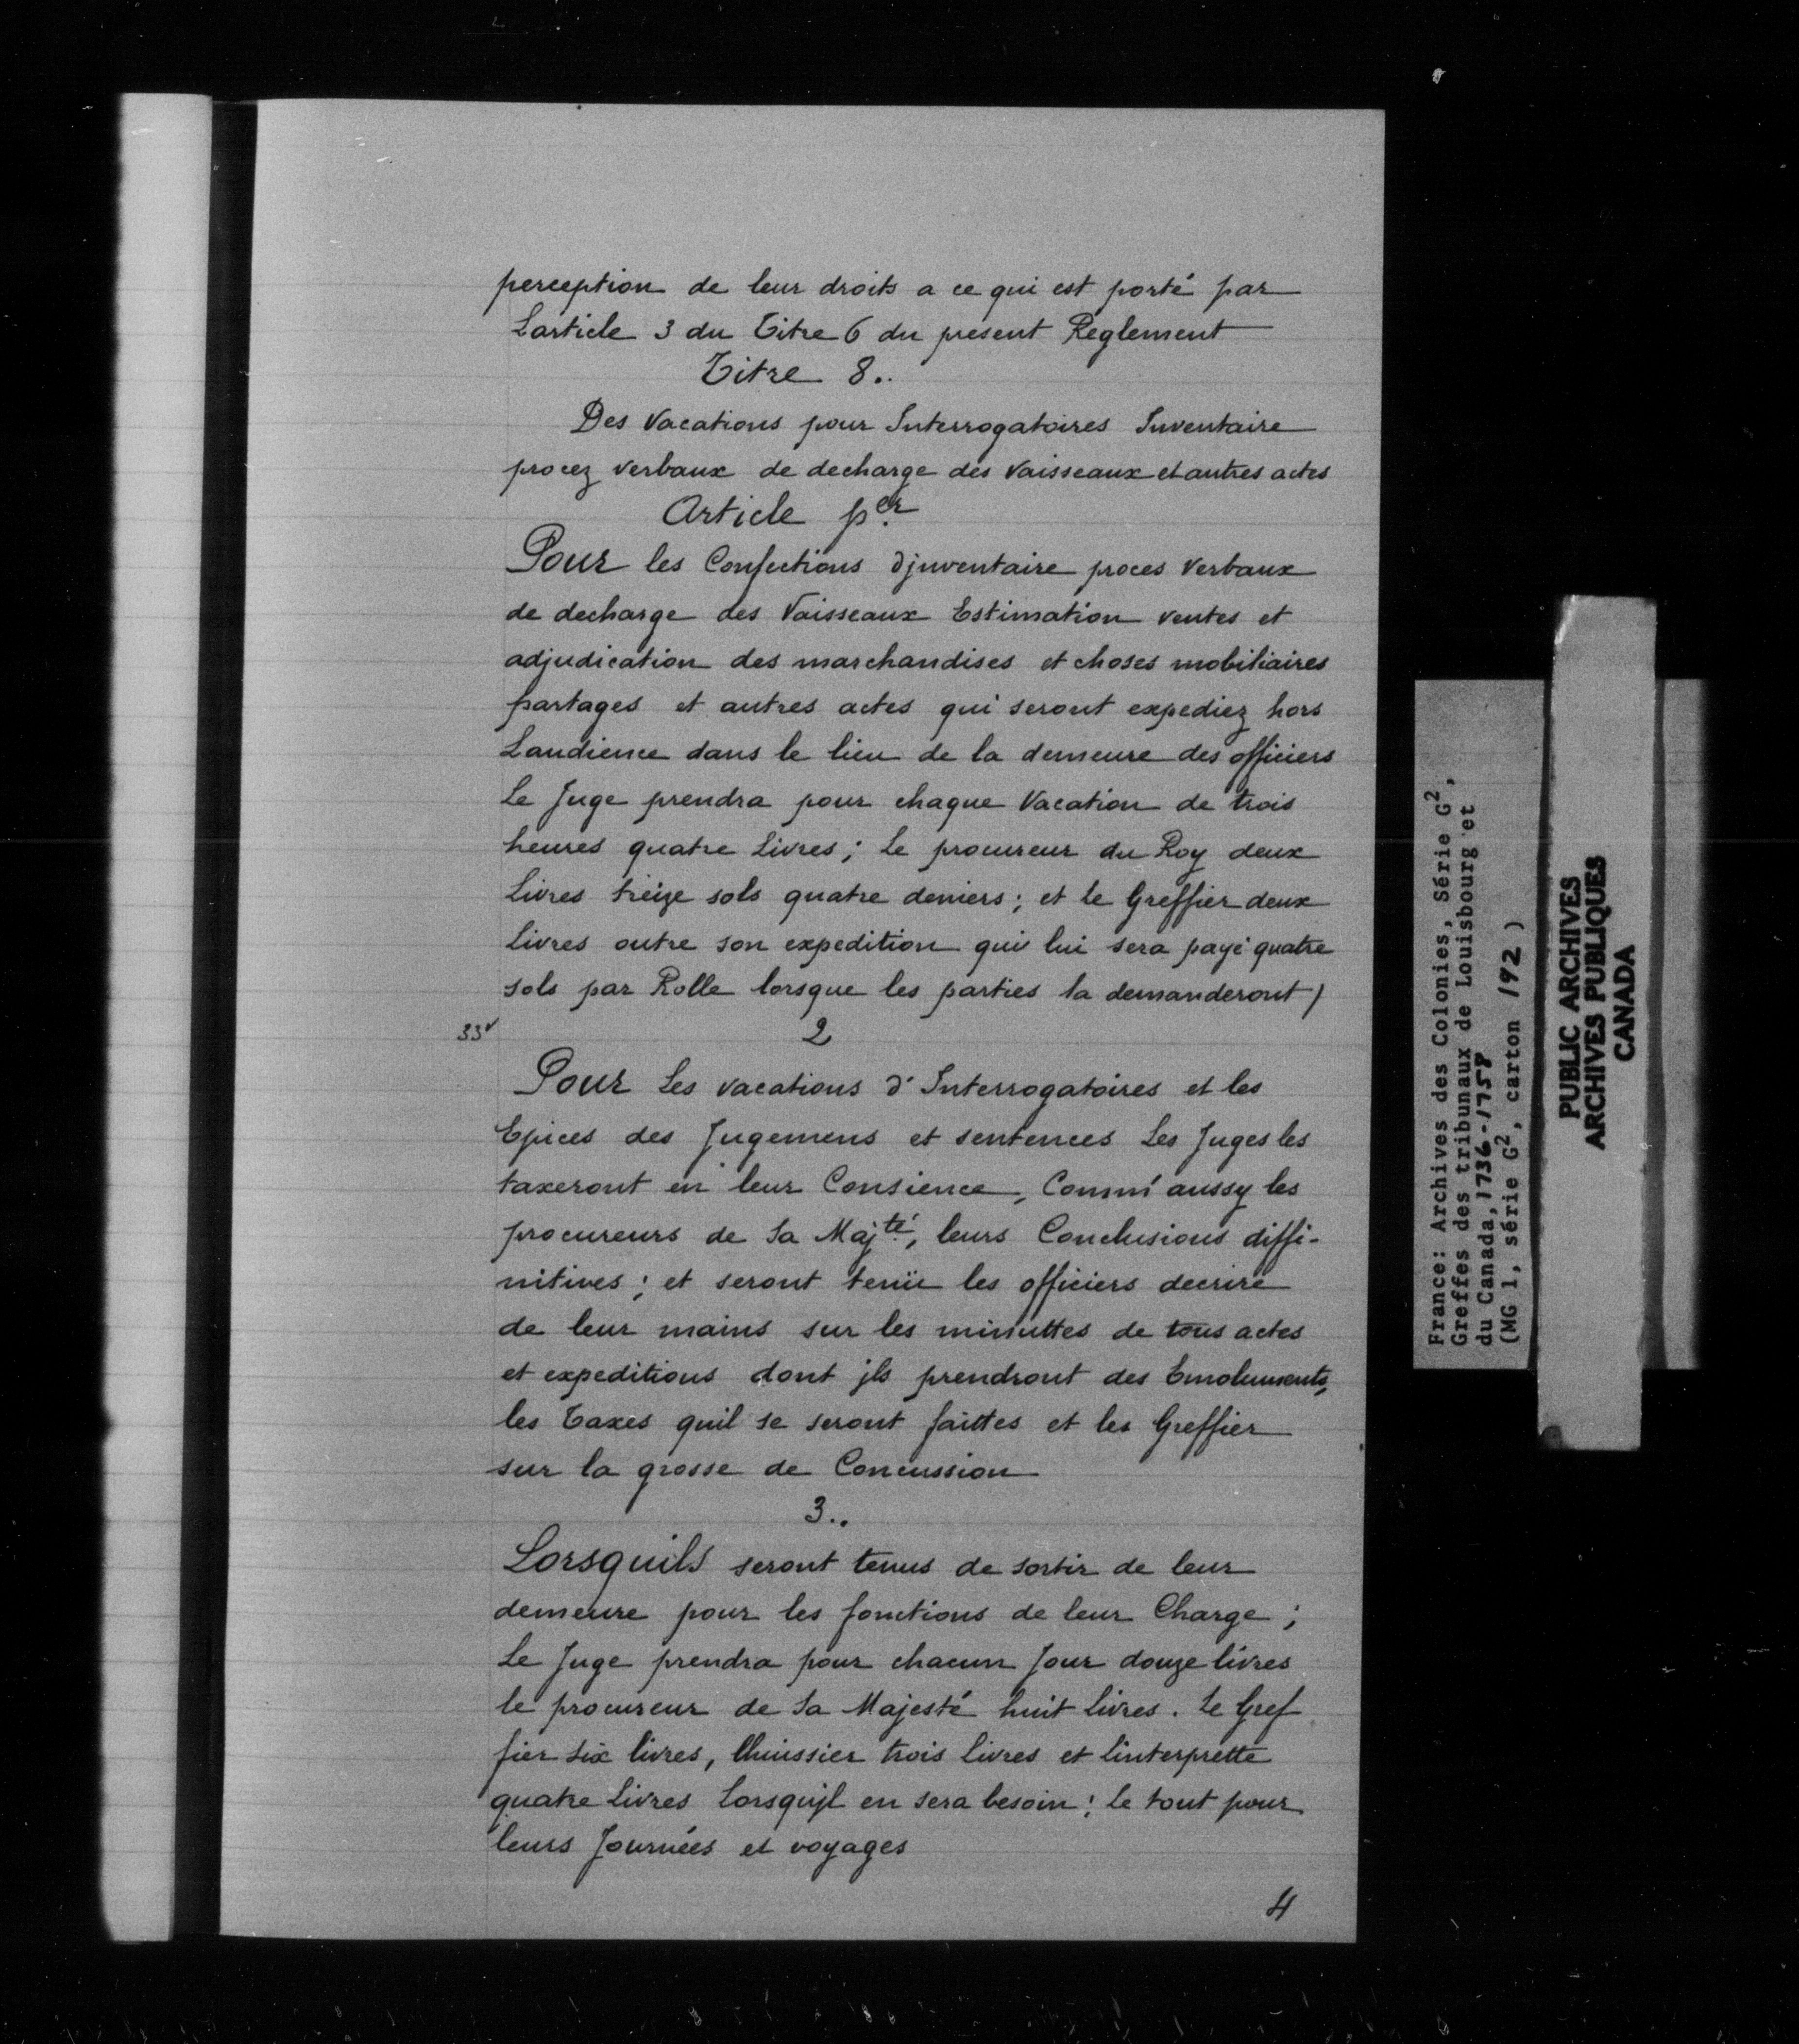 perception de leur droits a ce qui est porté par
Larticle 3 du Titre 6 du present Reglement
Titre 8..
Des Vacations pour Interrogatoires Inventaire
procez verbaux de decharge des Vaisseaux et autres actes
Article per
Pour les Confections djnventaire proces Verbaux
de decharge des Vaisseaux Estimation ventes et
adjudication des marchandises et choses mobiliaires
partages et autres actes qui seront expediez hors
Laudience dans le lieu de la demeure des officiers
Le Juge prendra pour chaque Vacation de trois
heures quatre Livres; Le procureur du Roy deux
Livres treize sols quatre deniers; et le Greffier deux
Livres outre son expedition qui lui sera payé quatre
sols par Rolle lorsque les parties la demanderont)
33v
2
Pour Les vacations d'Interrogatoires et les
Epices des Jugemens et sentences Les Juges les
taxeront en leur Consience, Comm'aussy les
procureurs de Sa Majté, leurs Conclusions diffi-
nitives; et seront tenüe les officiers decrire
de leur mains sur les minuttes de tous actes
et expeditions dont jls prendront des Emoluments,
les Taxes quil se seront faittes et les Greffier
sur la grosse de Concussion
3..
Lorsquils seront tenus de sortir de leur
demeure pour les fonctions de leur Charge;
Le Juge prendra pour chacun Jour douze livres
le procureur de Sa Majesté huit livres. Le Gref
fier six livres, lhuissier trois livres et linterprette
quatre Livres Lorsqujl en sera besoin; Le tout pour
leurs Journées et voyages
4
France: Archives des Colonies, Série G2,
Greffes des tribunaux de Louisbourg et
du Canada, 1736-1758
(MG 1, série G2, carton 192)
PUBLIC ARCHIVES
ARCHIVES PUBLIQUES
CANADA